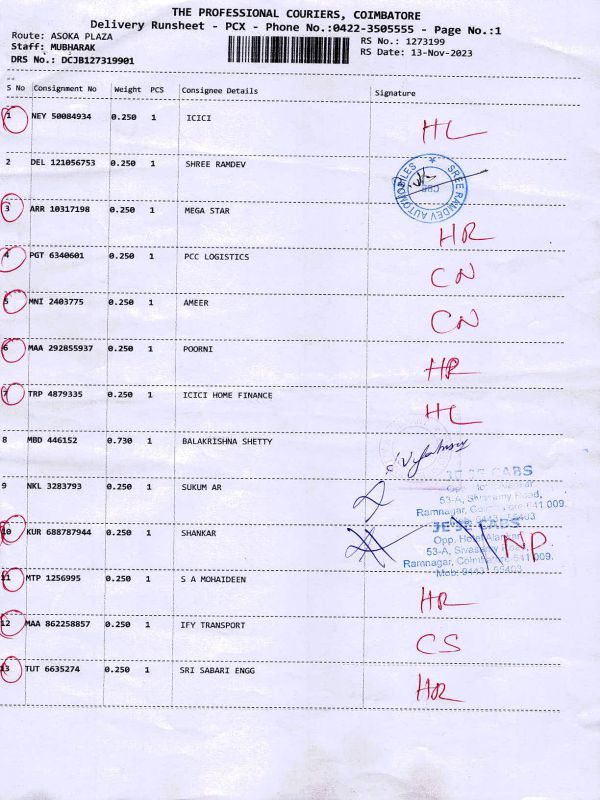 THE PROFESSIONAL COURIERS, COIMBATORE
Delivery Runsheet - PCX - Phone No.:0422-3505555 - Page No.:1
Route: ASOKA PLAZA RS No.: 1273199
Staff: MUBHARAK RS Date: 13-Nov-2023
DRS No.: DCJB127319901
S No Consignment No Weight PCS Consignee Details Signature
1 NEY 50084934 0.250 1 ICICI HL
2 DEL 121056753 0.250 1 SHREE RAMDEV
SREE RAMDEV AUTOMOBILES
CBE
3 ARR 10317198 0.250 1 MEGA STAR HR
4 PGT 6340601 0.250 1 PCC LOGISTICS CN
5 MNI 2403775 0.250 1 AMEER CN
6 MAA 292855937 0.250 1 POORNI HR
7 TRP 4879335 0.250 1 ICICI HOME FINANCE HL
8 MBD 446152 0.730 1 BALAKRISHNA SHETTY
CABS
Opp.
53-A, Road,
Ramnagar, 641 009.
9 NKL 3283793 0.250 1 SUKUM AR
CABS
10 KUR 688787944 0.250 1 SHANKAR NP
Opp. Hotel
53-A,
Ramnagar, Coimbatore-641 009.
Mob:
11 MTP 1256995 0.250 1 S A MOHAIDEEN HR
12 MAA 862258857 0.250 1 IFY TRANSPORT CS
13 TUT 6635274 0.250 1 SRI SABARI ENGG HR